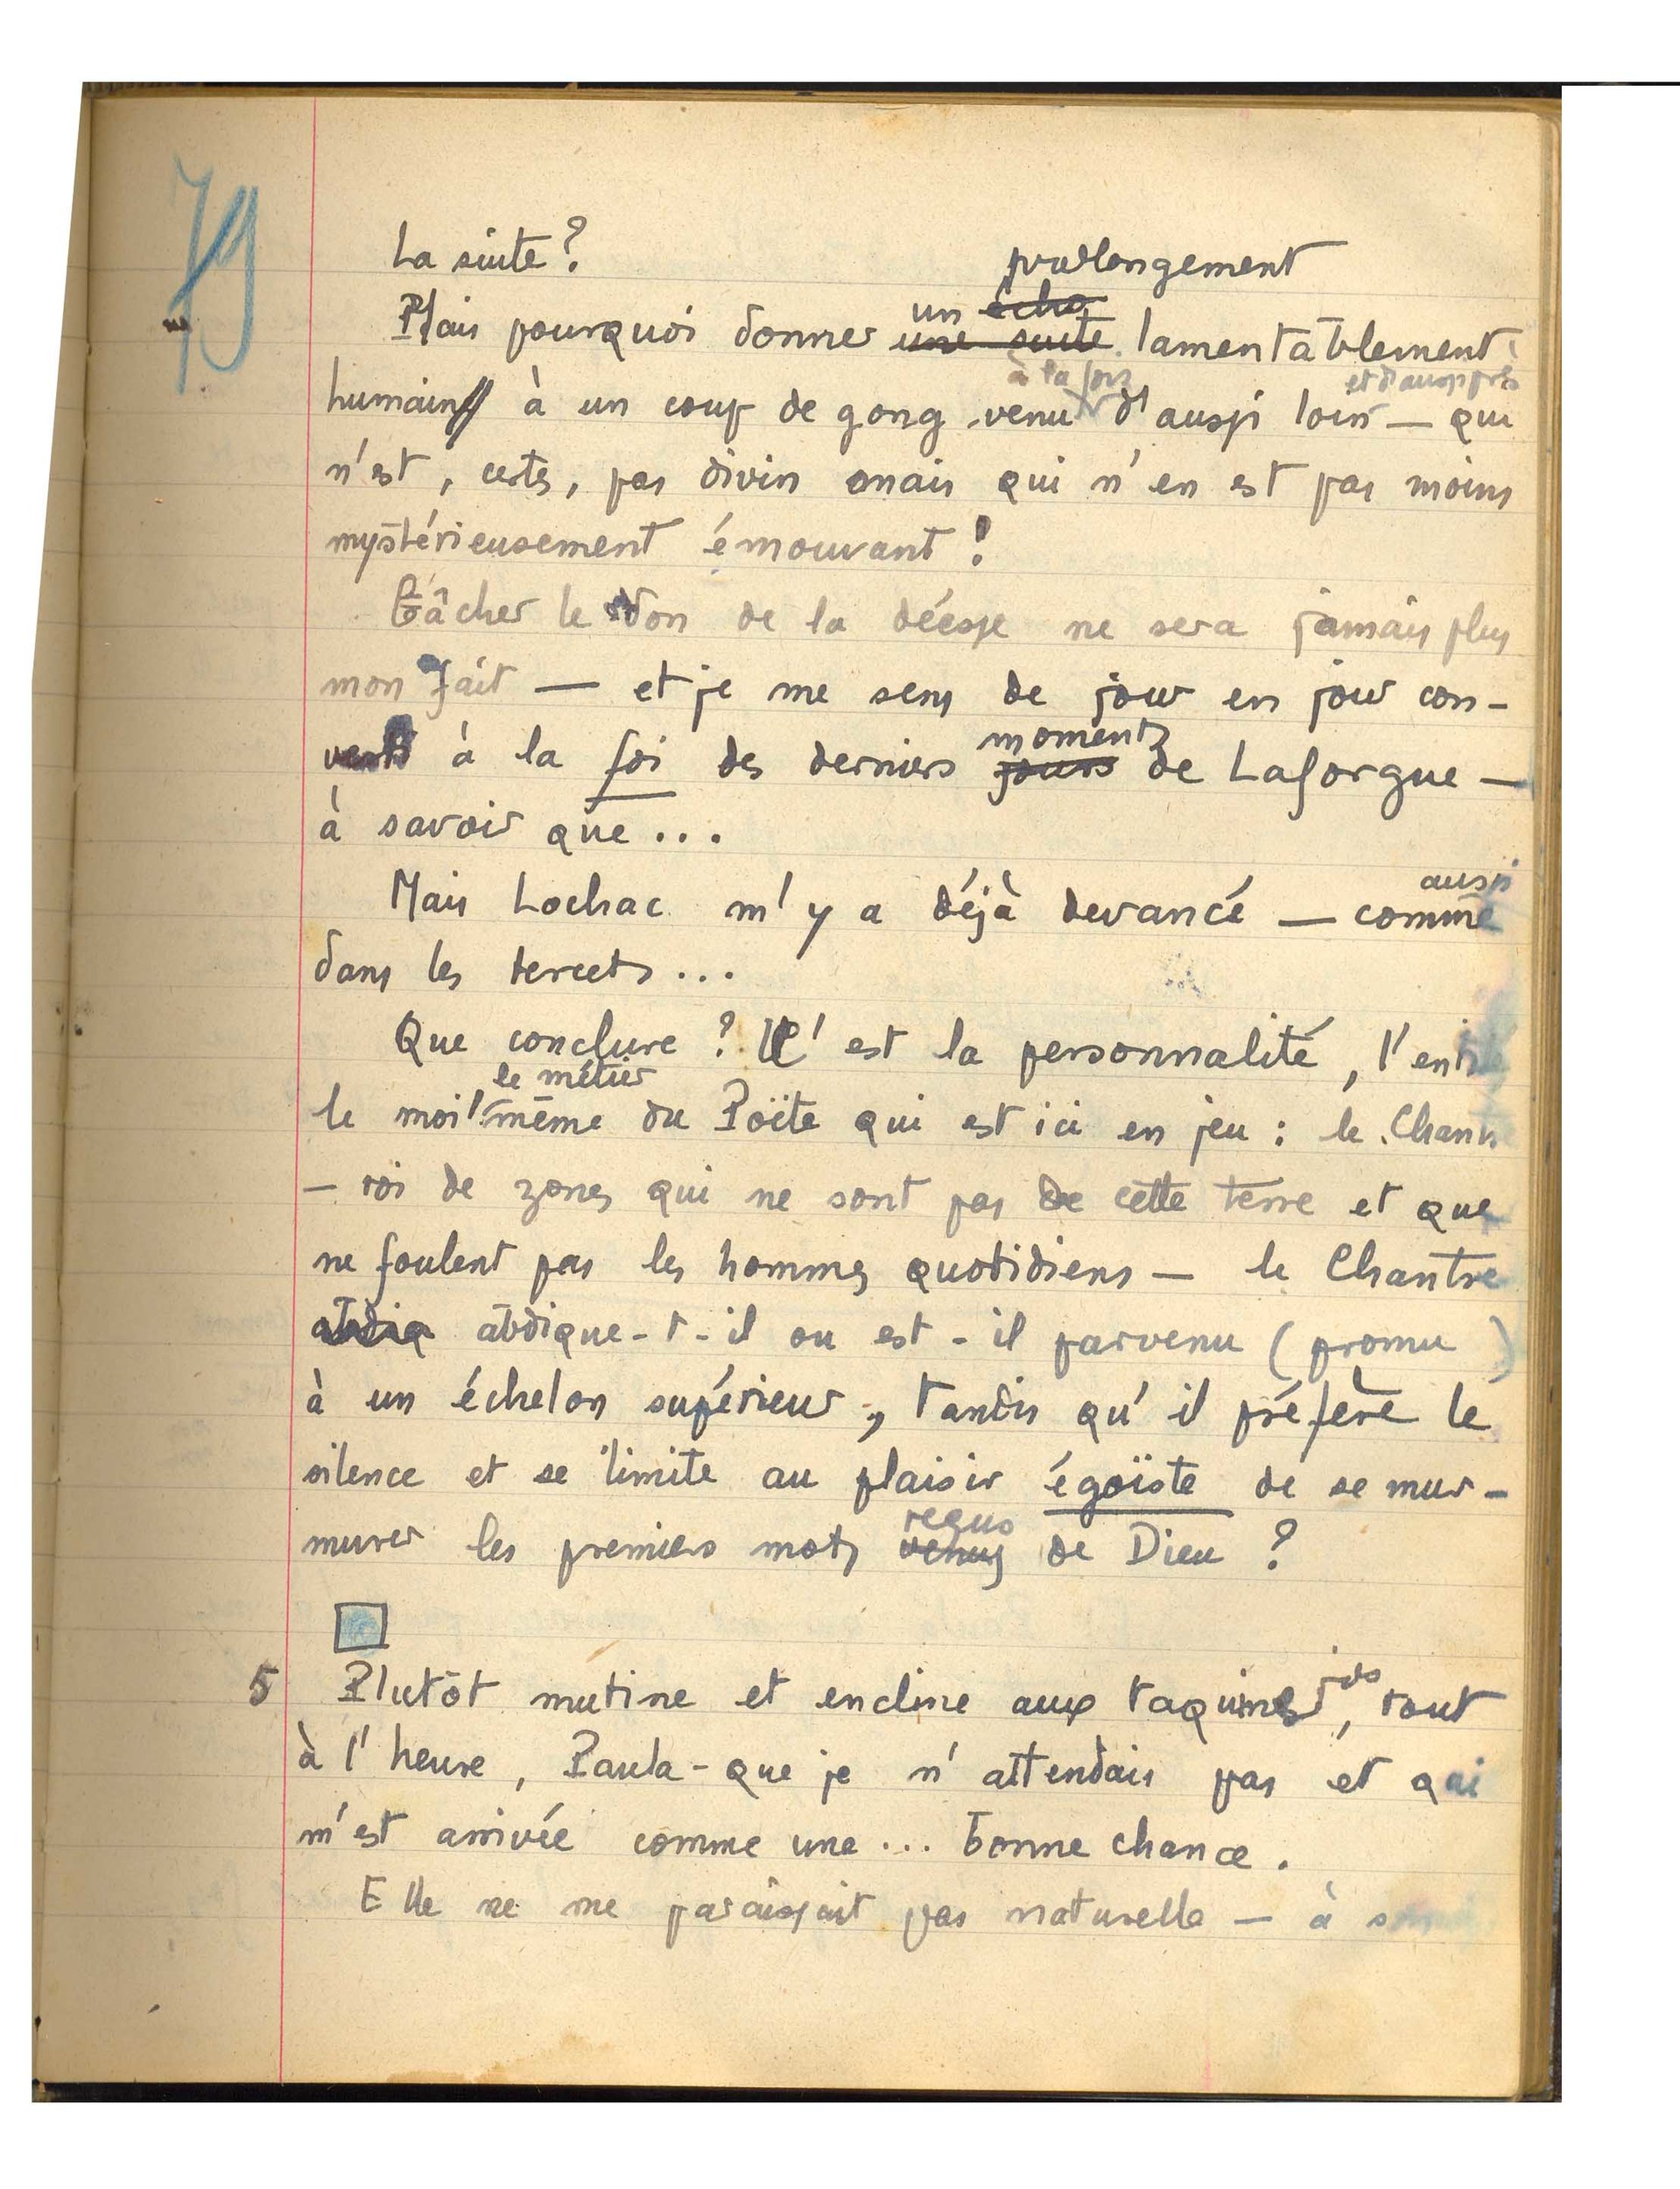 79
La suite ?
prolongement
un écho
Mais pourquoi donner une suite lamentablement
à la fois et d'aussi près
humain à un coup de gong venu d'aussi loin — qui
n'est, certes, pas divin mais qui n'en est pas moins
mystérieusement émouvant !
Gâcher le don de la déesse ne sera jamais plus
mon fait — et je me sens de jour en jour con-
verti à la foi des derniers jours de Laforgue —
moments
à savoir que...
aussi
Mais Lochac m'y a déjà devancé — comme
dans les tercets...
Que conclure ? C'est la personnalité, l'entité
le métier
le moi même du Poëte qui est ici en jeu : le Chantre
— roi de zones qui ne sont pas de cette terre et que
ne foulent pas les hommes quotidiens — le Chantre
abdiq abdique-t-il ou est-il parvenu (promu)
à un échelon supérieur, tandis qu'il préfère le
silence et se limite au plaisir égoïste de se mur-
reçus
murer les premiers mots venus de Dieu ?
5 Plutôt mutine et encline aux taquineries, tout
à l'heure, Paula - que je n'attendais pas et qui
m'est arrivée comme une ... bonne chance.
Elle ne me paraissait pas naturelle — à